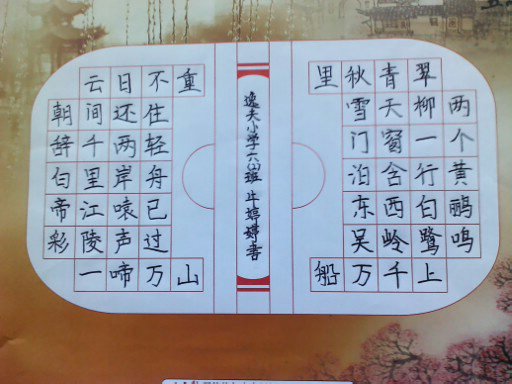 两个黄鹂鸣
翠柳一行白鹭上
青天窗含西岭千
秋雪门泊东吴万
里船
逸夫小学六班
朝辞白帝彩
云间千里江陵一
日还两岸猿声啼
不住轻舟已过万
重山